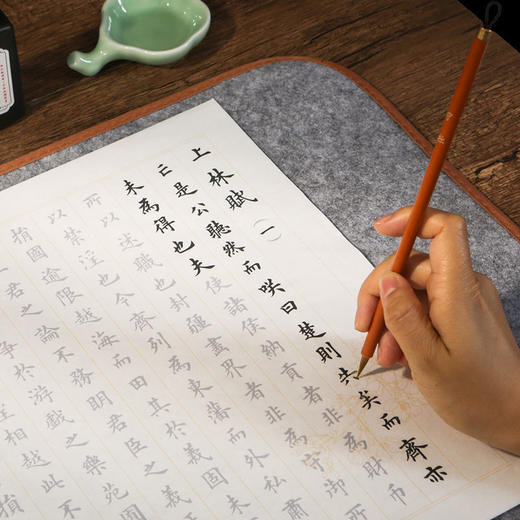 上林賦（一）
亡是公聽然而咲曰楚則失矣而齊亦
未為得也夫使諸侯納貢者非為財币
所以述職也封疆畫界者非為守御
以禁淫也今齊列為東藩而外私肅
捐國逾限越海而田其於義固未
君之論不務明君臣之義固
爭於游戲之樂苑
淫相越此不
損